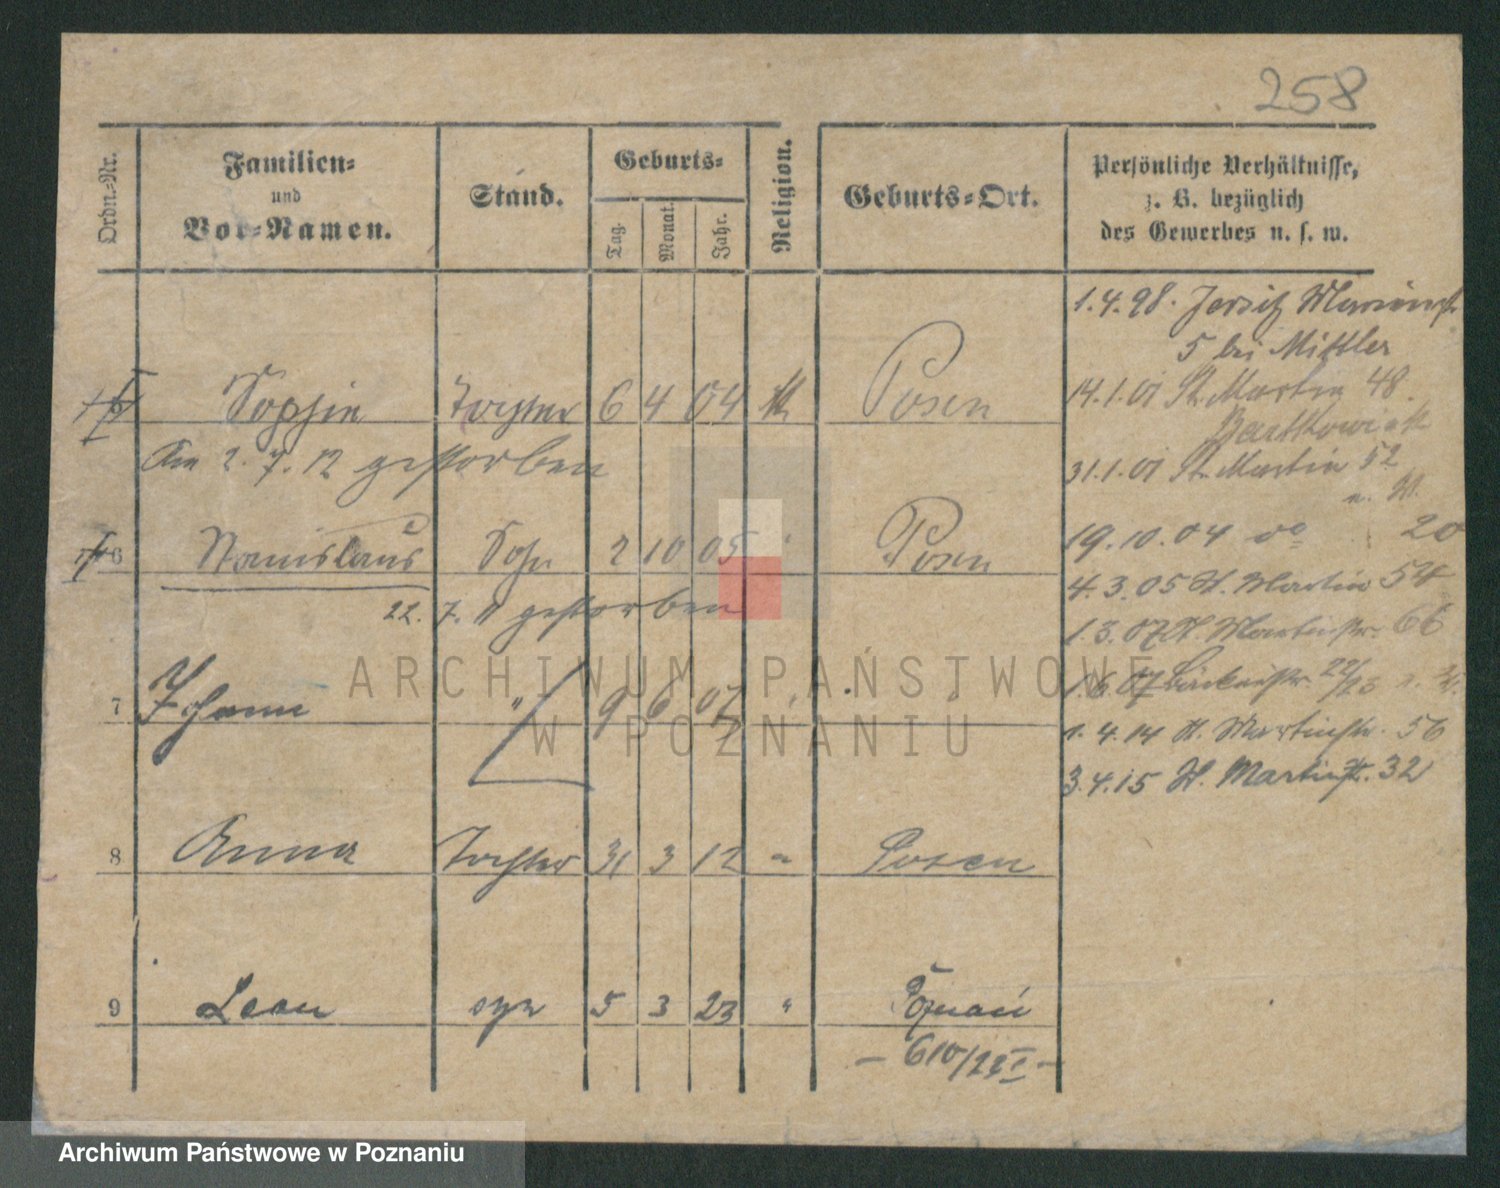 258
Ordn.-Nr.
Familien-
und
Vor-Namen.
Stand.
Geburts-
Tag.
Monat.
Jahr.
Religion.
Geburts-Ort.
Persönliche Verhältnisse,
z. B. bezüglich
des Gewerbes u. s. w.
1.4.98. Jersitz
5 bei Mittler
Sophie Tochter 6 4 04 Posen
14.1.01 St. Martin 48.
Bartkowiak
Am 2. 7. 12 gestorben
31.1.01 St. Martin 52
6 Stanislaus Sohn 2 10 05 Posen
19.10.04 do 20
4.3.05 St. Martin 54
22. 7. 11 gestorben
1.3.07 St. Martinstr. 66
7 Johann " 9 6 07
1.6.07 22/23
1.4.14 St. Martinstr. 56
3.4.15 St. Martinstr. 32
8 Anna Tochter 31 3 12 " Posen
9 Leon syn 5 3 23 " Poznań
- 610/23 I -
ARCHIWUM PAŃSTWOWE
W POZNANIU
Archiwum Państwowe w Poznaniu